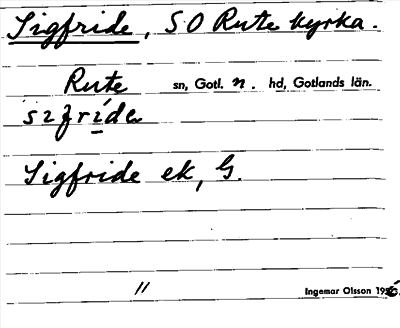 Sigfride, SO Rute kyrka.
Rute sn, Gotl. n. hd, Gotlands län.
Sigfride ek, G.
"
Ingemar Olsson 1956.